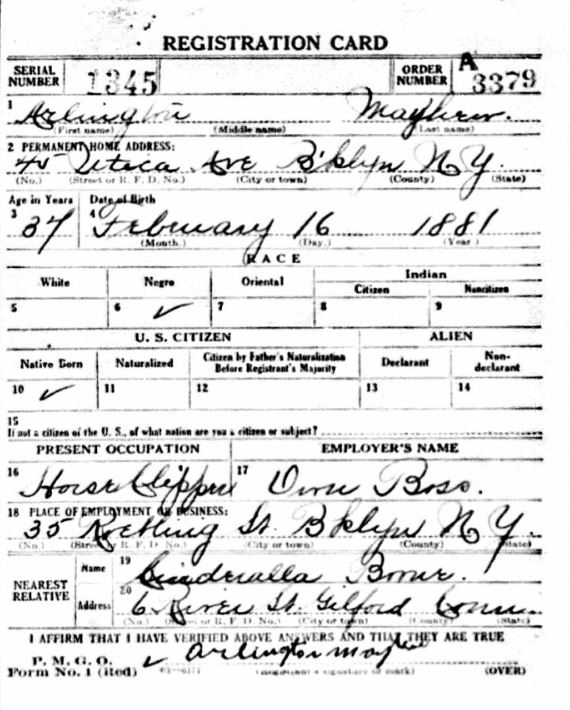 REGISTRATION CARD
SERIAL NUMBER 1345 ORDER NUMBER A 3379
1 Arlington Mayhew.
(First name) (Middle name) (Last name)
2 PERMANENT HOME ADDRESS:
45 Utica Ave B'klyn N.Y.
(No.) (Street or R. F. D. No.) (City or town) (County) (State)
Age in Years Date of Birth
3 37 4 February 16 1881
(Month.) (Day.) (Year)
RACE
White Negro Oriental Indian
Citizen Noncitizen
5 6 ✓ 7 8 9
U. S. CITIZEN ALIEN
Native Born Naturalized Citizen by Father's Naturalization Before Registrant's Majority Declarant Non-declarant
10 ✓ 11 12 13 14
15
If not a citizen of the U. S., of what nation are you a citizen or subject?
PRESENT OCCUPATION EMPLOYER'S NAME
16 Horse Clipper 17 Own Boss.
18 PLACE OF EMPLOYMENT OR BUSINESS:
35 Roebling St. B'klyn N.Y.
(No.) (Street or R. F. D. No.) (City or town) (County) (State)
NEAREST RELATIVE Name 19 Cinderalla
Address 20 6 River St. Gilford Conn.
(No.) (Street or R. F. D. No.) (City or town) (County) (State)
I AFFIRM THAT I HAVE VERIFIED ABOVE ANSWERS AND THAT THEY ARE TRUE
P. M. G. O.
Form No. 1 (Red) ✓ Arlington Mayhew
(Registrant's signature or mark) (OVER)